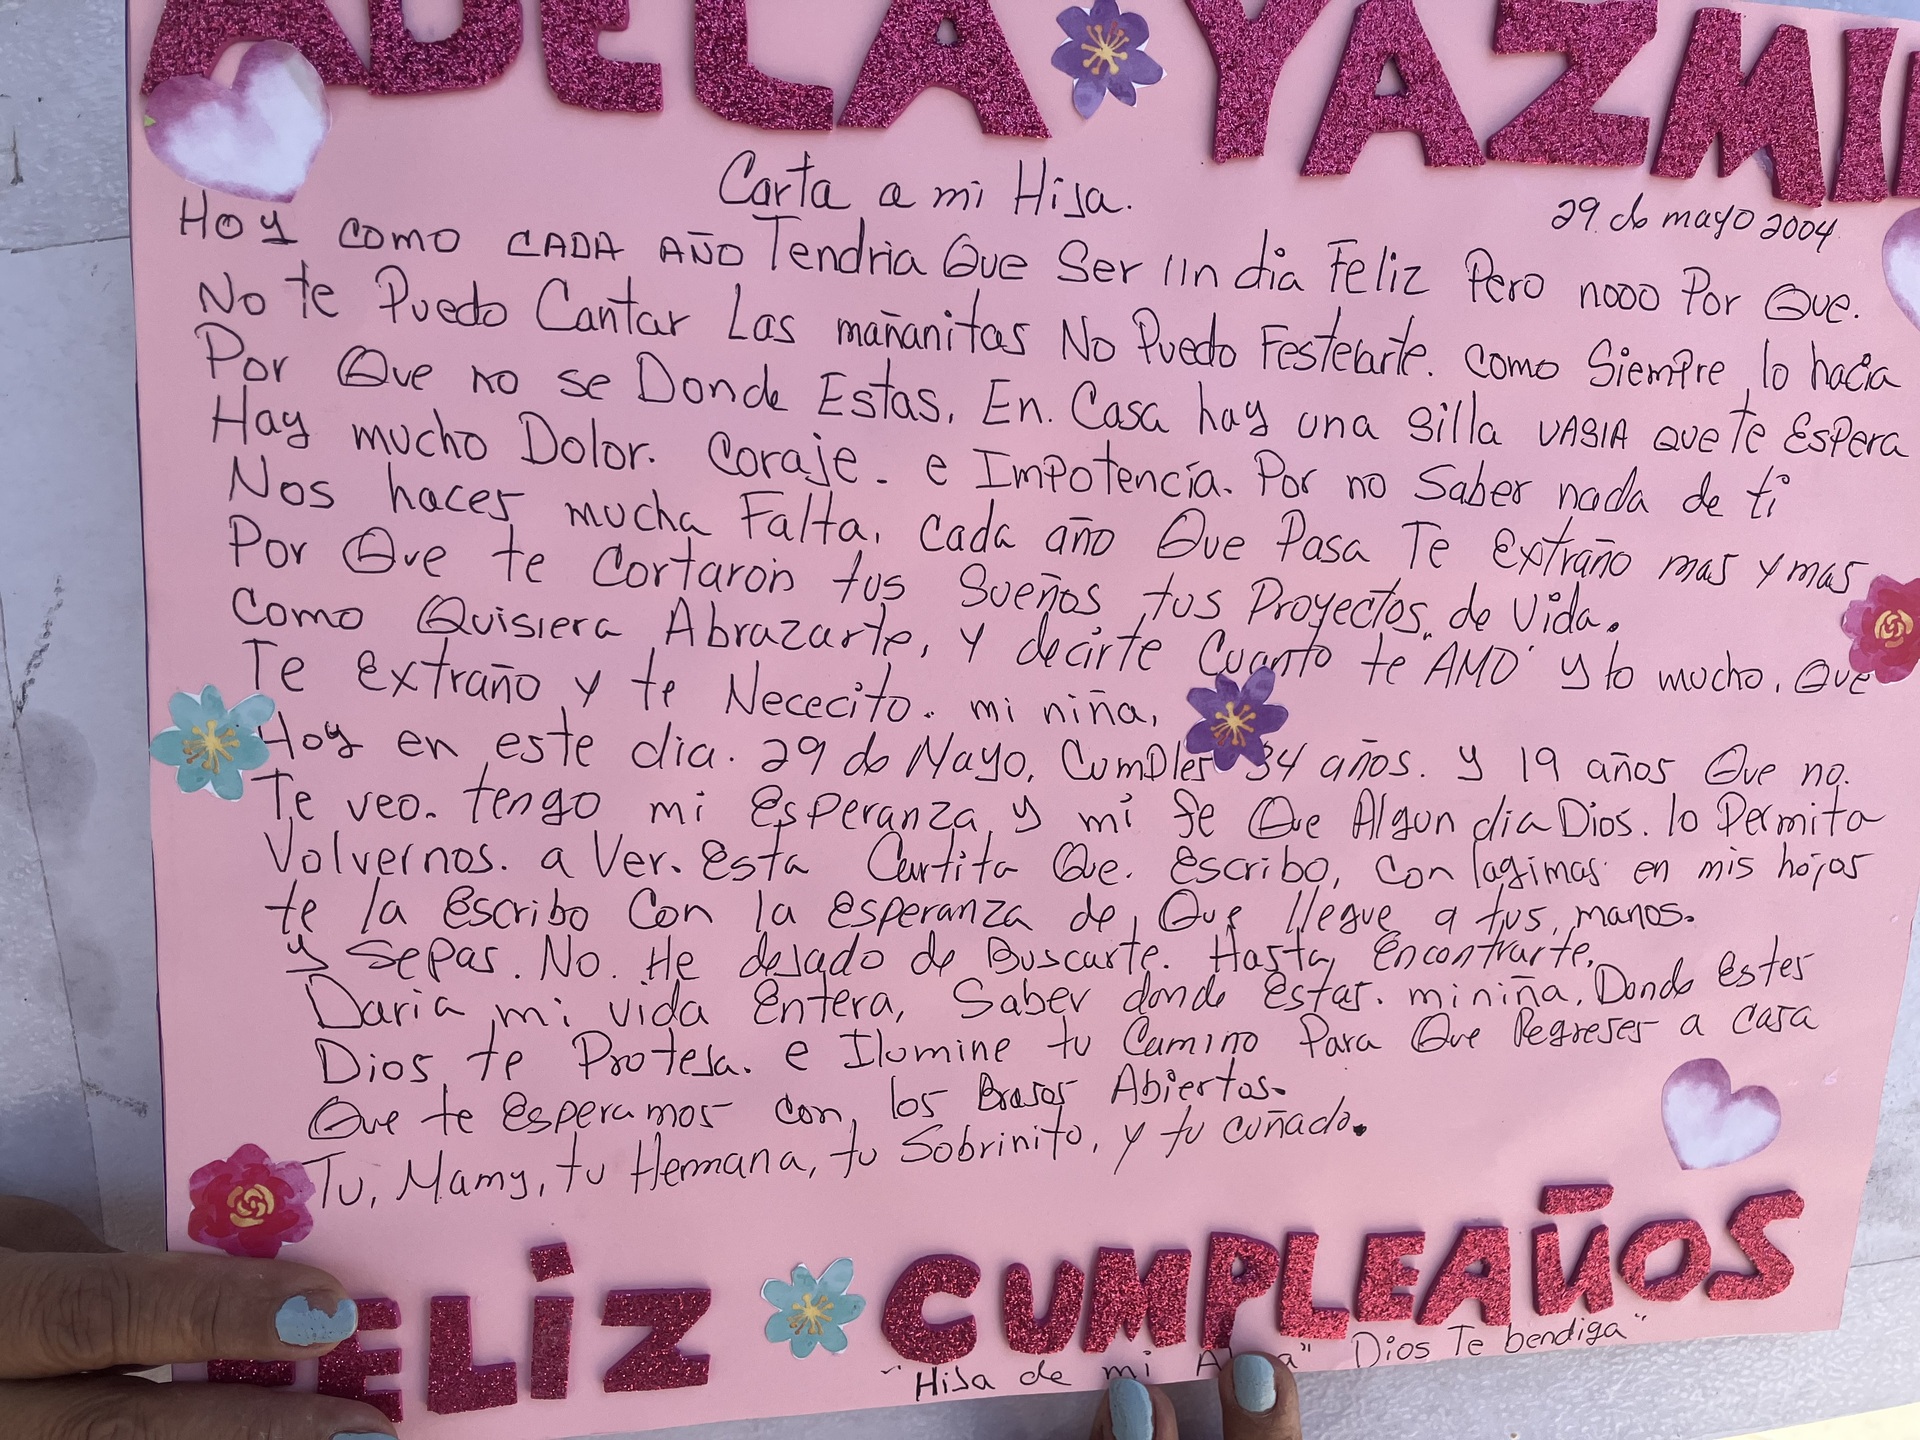 ADELA YAZMI
Carta a mi Hija.
29 de mayo 2004
Hoy como CADA AÑO Tendria Que Ser un dia Feliz Pero nooo Por Que.
No te Puedo Cantar Las mañanitas No Puedo Festelarte. como Siempre lo hacia
Por Que no se Donde Estas. En. Casa hay una silla VASIA Que te Espera
Hay mucho Dolor. Coraje. e Impotencia. Por no Saber nada de ti
Nos haces mucha Falta. cada año Que Pasa Te extraño mas y mas
Por Que te Cortaron tus Sueños, tus Proyectos de Vida.
Como Quisiera Abrazarte, y decirte Cuanto te "AMO" y lo mucho. Que
Te extraño y te Nececito. mi niña,
Hoy en este dia. 29 de Mayo. Cumples 34 años. y 19 años Que no.
Te veo. tengo mi esperanza y mi fe Que Algun dia Dios. lo Permita
Volvernos. a Ver. Esta Cartita Que. escribo, con lagimas en mis hojas
te la escribo Con la esperanza de, Que llegue a tus, manos.
y Sepas. No. He dejado de Buscarte. Hasta encontrarte.
Daria mi vida entera, Saber donde estas. mi niña. Donde Estes
Dios te Proteja. e Ilumine tu Camino Para Que Regreses a casa
Que te esperamos con, los Brasos Abiertos.
Tu, Mamy, tu Hermana, tu Sobrinito, y tu cuñado.
FELIZ CUMPLEAÑOS
"Hija de mi Dios Te bendiga"